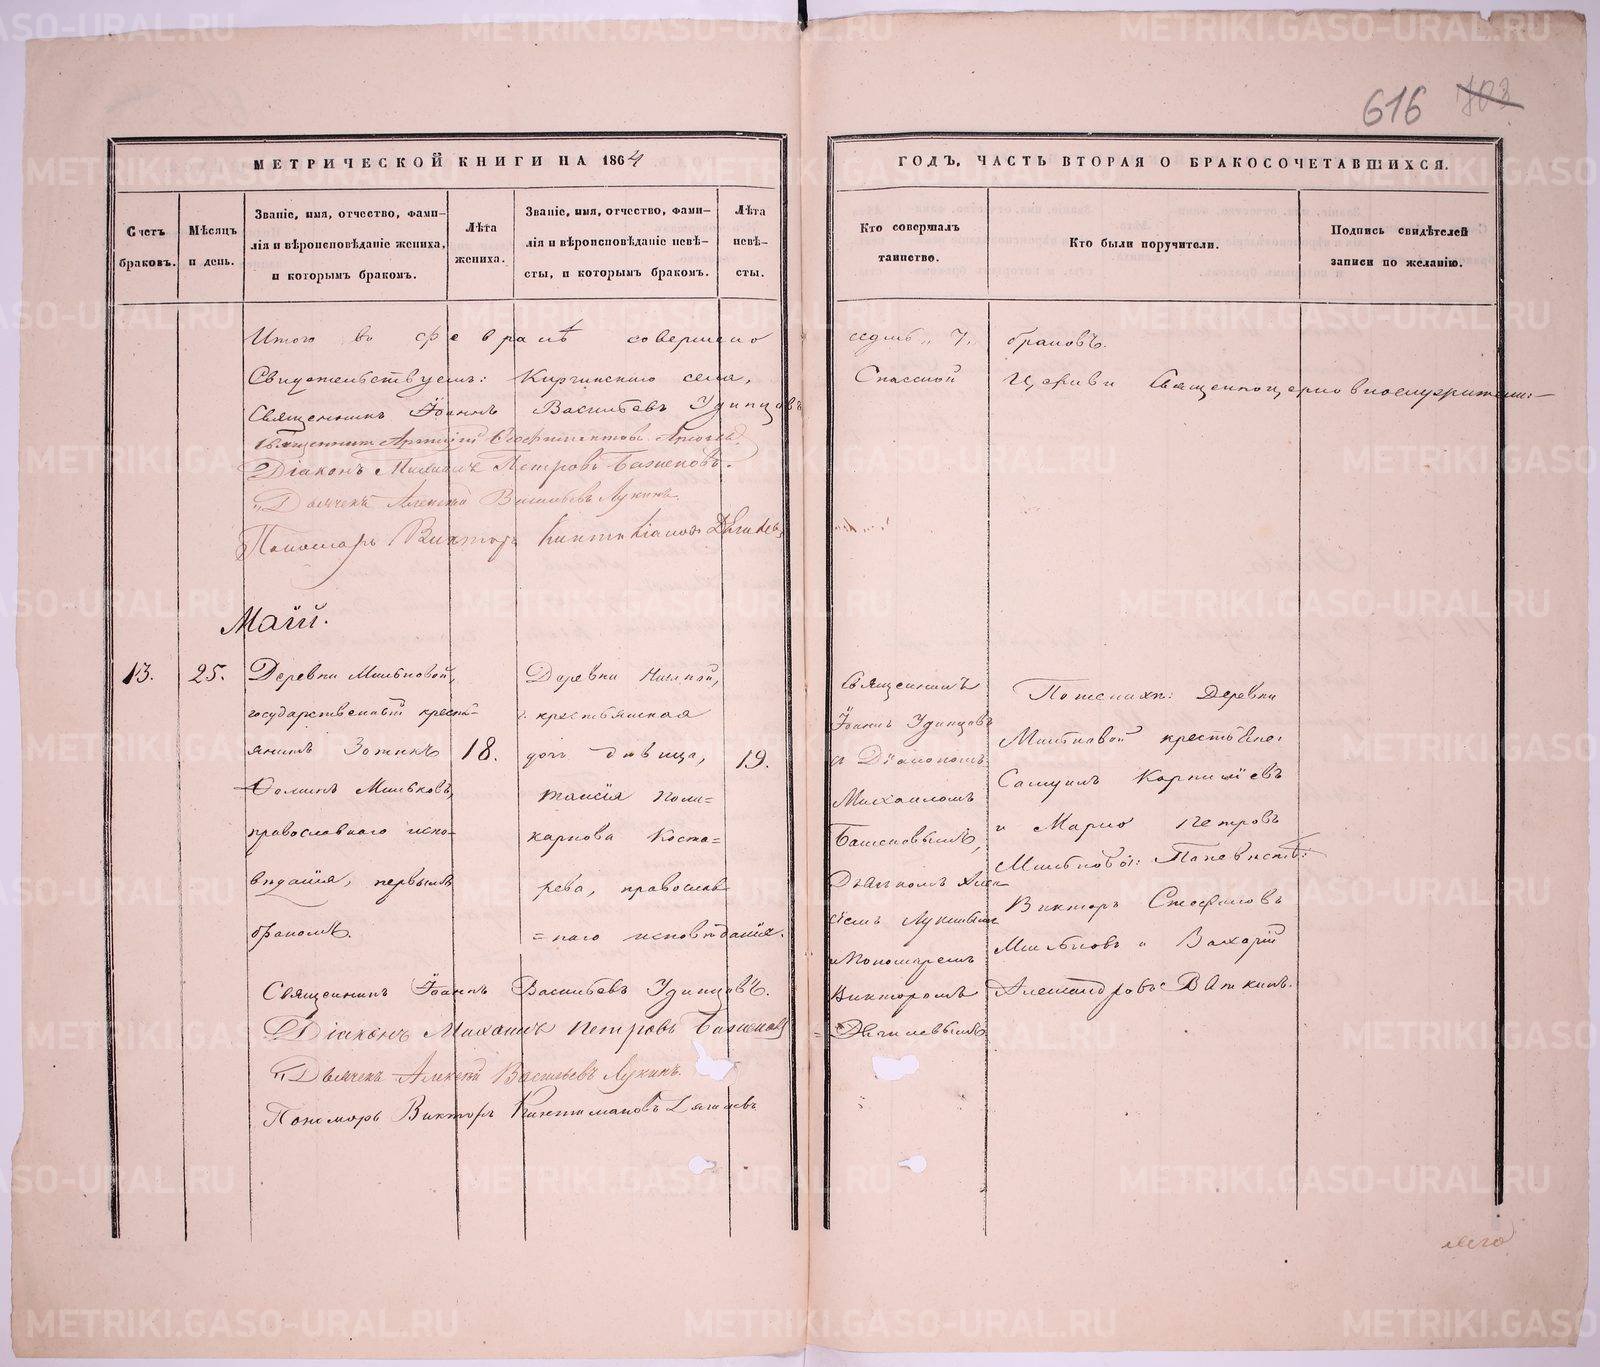 616 703
МЕТРИЧЕСКОЙ КНИГИ НА 1864
ГОДЪ, ЧАСТЬ ВТОРАЯ О БРАКОСОЧЕТАВШИХСЯ.
Счетъ браковъ.
Мѣсяцъ и день.
Званіе, имя, отчество, фами-
лія и вѣроисповѣданіе жениха,
и которымъ бракомъ.
Лѣта
жениха.
Званіе, имя, отчество, фами-
лія и вѣроисповѣданіе невѣ-
сты, и которымъ бракомъ.
Лѣта
невѣ-
сты.
Кто совершалъ
таинство.
Кто были поручители.
Подпись свидѣтелей
записи по желанію.
Итого въ февралѣ совершено седмь „7„ браковъ.
Свидѣтельствуемъ: Киргинскаго села, Спасской Церкви Священноцерковнослужители:
Священникъ Іоаннъ Васильевъ Удинцовъ
Священникъ
Діаконъ Михаилъ Петровъ Баженовъ.
Дьячекъ Алексѣй Васильевъ Лукинъ.
Пономарь Викторъ
Маій.
13.
25.
Деревни Мильковой,
государственный кресть-
янинъ Зотикъ
Фоминъ Мильковъ,
православнаго испо-
вѣданія, первымъ
бракомъ.
18.
Деревни
крестьянская
дочь дѣвица,
Таисія Поли=
карпова Коста=
рева, православ
=наго исповѣданія.
19.
Священникъ
Іоаннъ Удинцовъ
съ Діакономъ
Михаиломъ
Баженовымъ,
Дьячкомъ Алек
сѣемъ Лукинымъ
и Пономаремъ
Викторомъ
По женихѣ: Деревни
Мильковой крестьяне:
Самуилъ
и Марко Петровъ
Мильковы: По невѣстѣ:
Викторъ Стефановъ
Мильковъ и
Александровъ Вяткинъ.
Священникъ Іоаннъ Васильевъ Удинцовъ.
Діаконъ Михаилъ Петровъ Баженовъ
Дьячекъ Алексѣй Васильевъ Лукинъ.
Пономарь Викторъ
METRIKI.GASO-URAL.RU